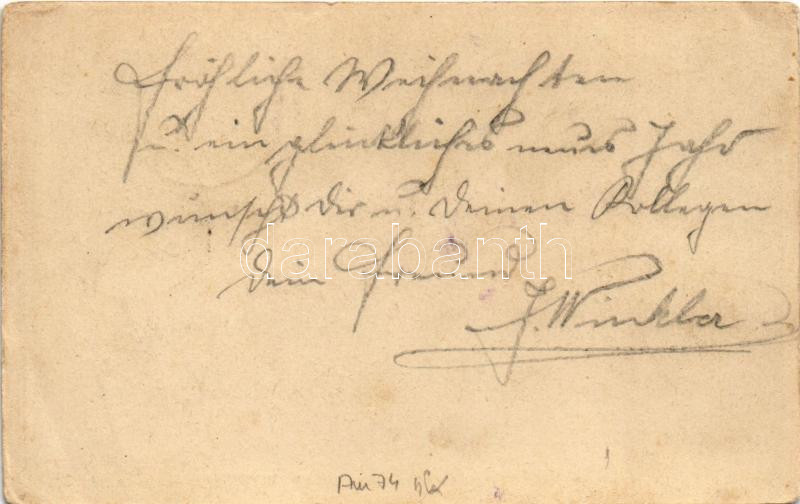 Fröhliche Weihnachten
u. ein glückliches neues Jahr
wünscht dir u. deinen Kollegen
darabanth
dein Freund
J. Winkler